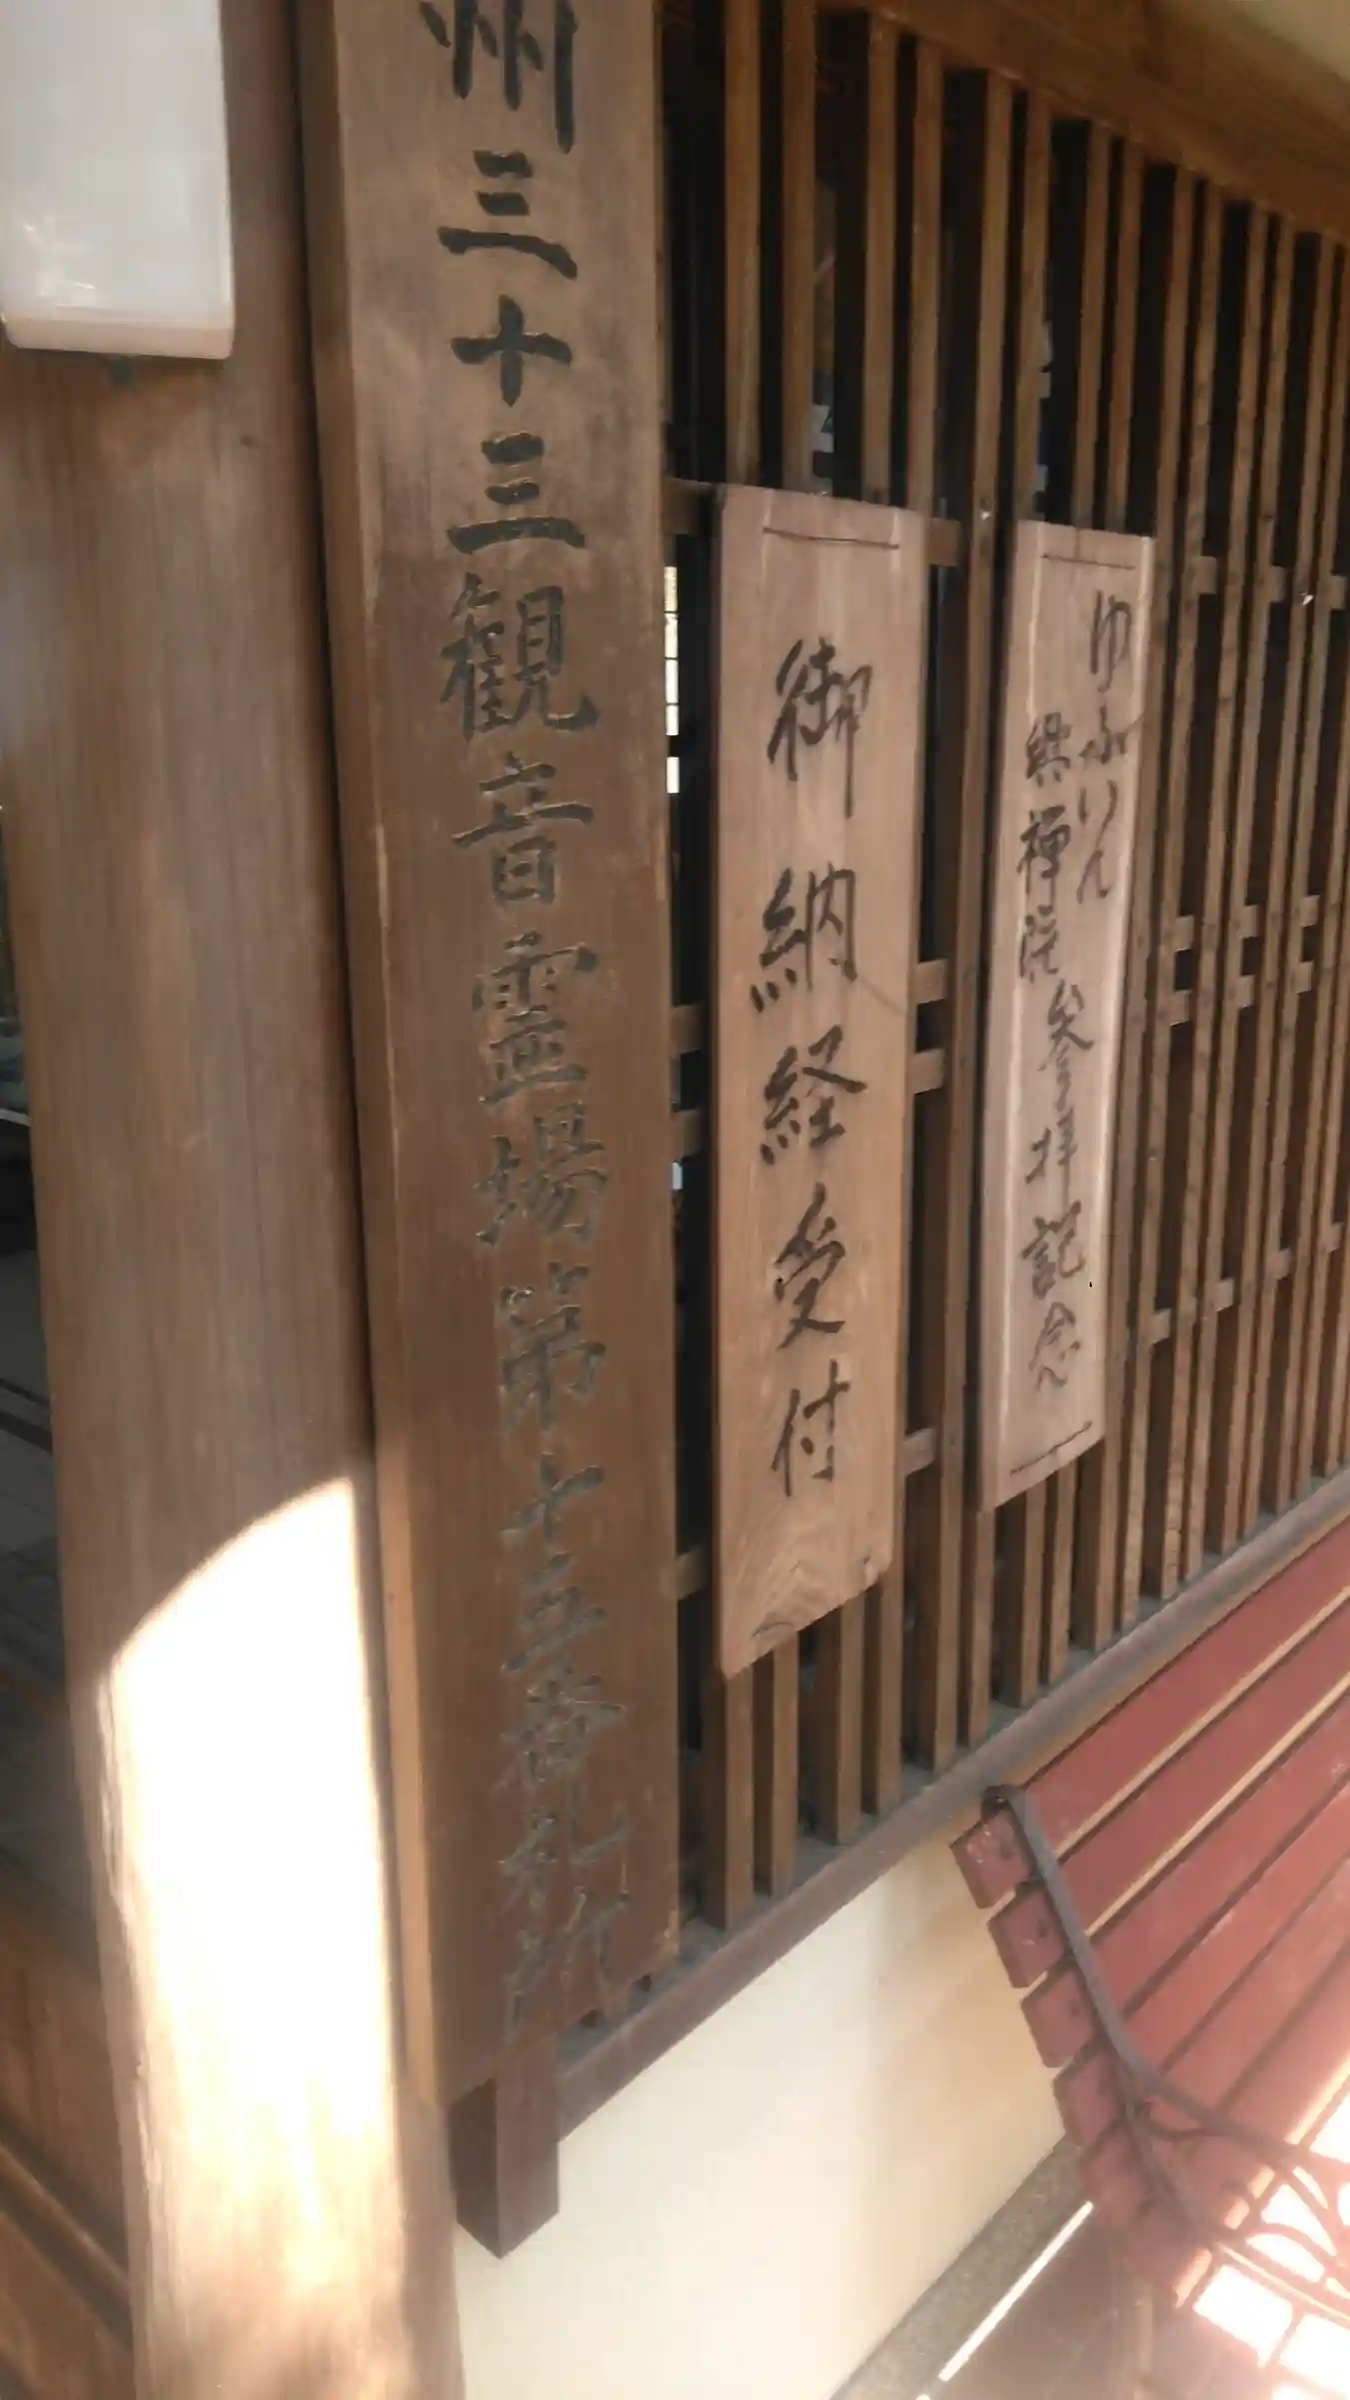 州三十三観音霊場第十五番札所
御納経受付
ゆふいん
興禅院参拝記念